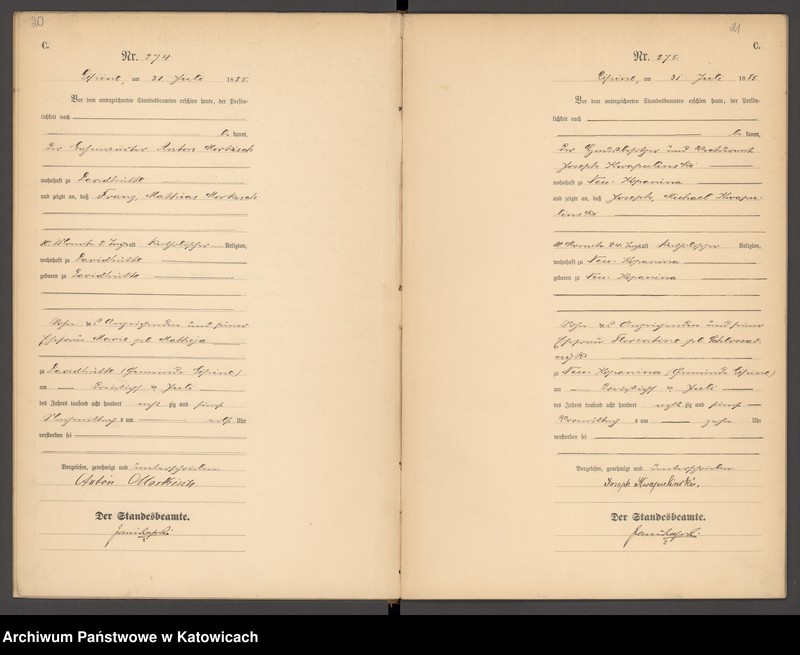 20
C.
Nr. 274
am 31 Juli 1885.
Vor dem unterzeichneten Standesbeamten erschien heute, der Persön-
lichkeit nach
be kannt,
der Anton Morkisch
wohnhaft zu Davidhütte
und zeigte an, daß Franz, Mathias Morkisch
alt katholischer Religion,
wohnhaft zu Davidhütte
geboren zu Davidhütte
Sohn des Anzeigenden und seiner
Ehefrau Marie geb.
zu Davidhütte (Gemeinde
am Juli
des Jahres tausend acht hundert acht zig und fünf
Nachmittag s um Uhr
verstorben sei
Vorgelesen, genehmigt und unterschrieben
Anton Morkisch
Der Standesbeamte.
21
C.
Nr. 275.
am 31 Juli 1885.
Vor dem unterzeichneten Standesbeamten erschien heute, der Persön-
lichkeit nach
be kannt,
der und
Joseph Kwapulinski
wohnhaft zu Neu-Kopanina
und zeigte an, daß Joseph, Michael Kwapu-
linski
alt katholischer Religion,
wohnhaft zu Neu-Kopanina
geboren zu Neu-Kopanina
Sohn des Anzeigenden und seiner
Ehefrau Florentine geb.
zu Neu-Kopanina (Gemeinde
am Juli
des Jahres tausend acht hundert acht zig und fünf
Vormittag s um zehn Uhr
verstorben sei
Vorgelesen, genehmigt und unterschrieben
Joseph Kwapulinski.
Der Standesbeamte.
Archiwum Państwowe w Katowicach